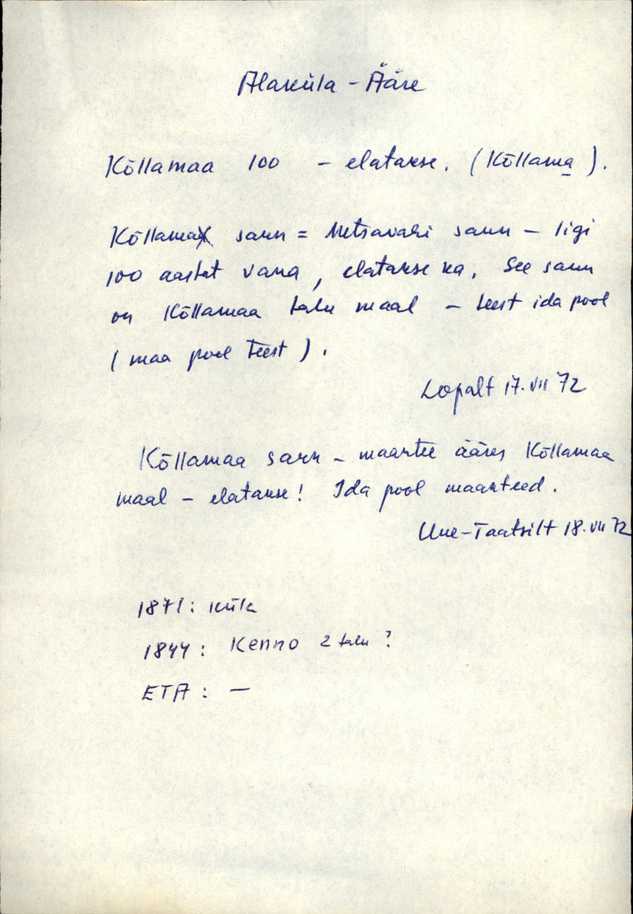 Alaküla - Ääre
Kõllamaa 100 - elatakse. (Kõllama).
Kõllamaa saun = Metsavahi saun - ligi
100 aastat vana, elatakse ka. See saun
on Kõllamaa talu maal - teest ida pool
(maa pool teest).
Lopalt 17. VII 72
Kõllamaa saun - maantee ääres Kõllamaa
maal - elatakse! Ida pool maanteed.
Uue-Taatsilt 18. VII 72
1871: küla
1844: Kenno 2 talu?
ETA: -